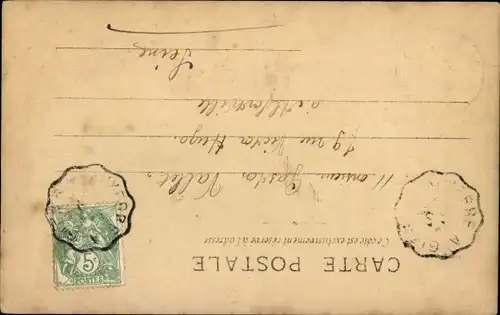 CARTE POSTALE
Ce côté est exclusivement réservé à l'adresse
Monsieur Gaston Vallet,
19 rue Victor Hugo.
à Alfortville
Seine
5c
POSTES